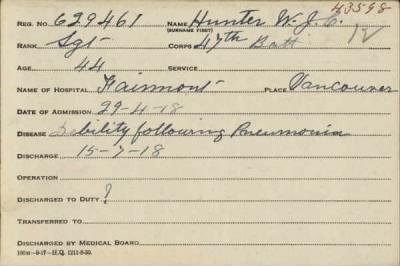 43598
REG. NO. 629461 NAME Hunter W. J. C.
(SURNAME FIRST) 12
RANK Sgt CORPS 47th Batt
AGE 44 SERVICE
NAME OF HOSPITAL Fairmont PLACE Vancouver
DATE OF ADMISSION 29-4-18
DISEASE Debility following Pneumonia
DISCHARGE 15-7-18
OPERATION
DISCHARGED TO DUTY ?
TRANSFERRED TO
DISCHARGED BY MEDICAL BOARD